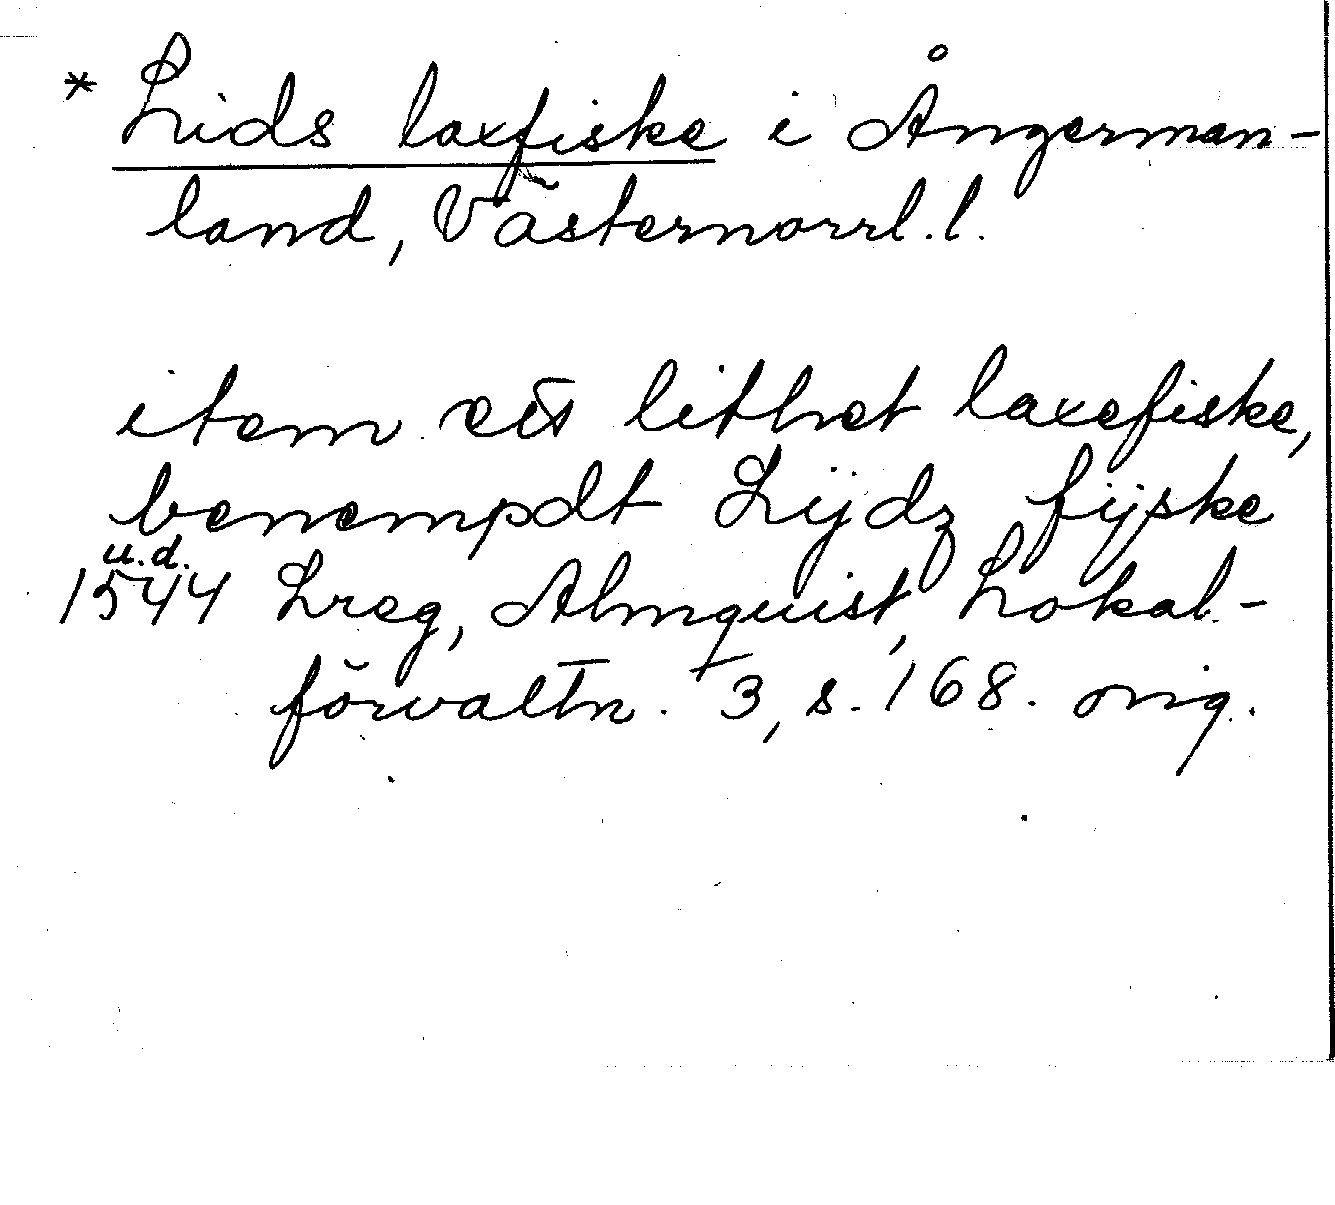 * Lids laxfiske i Ångerman-
land, Västernorrl. l.
item ett lithet laxefiske,
benempdt Lijdz fijske
u.d.
1544 Lreg, Almquist, Lokal-
förvaltn. 3, s. 168. orig.